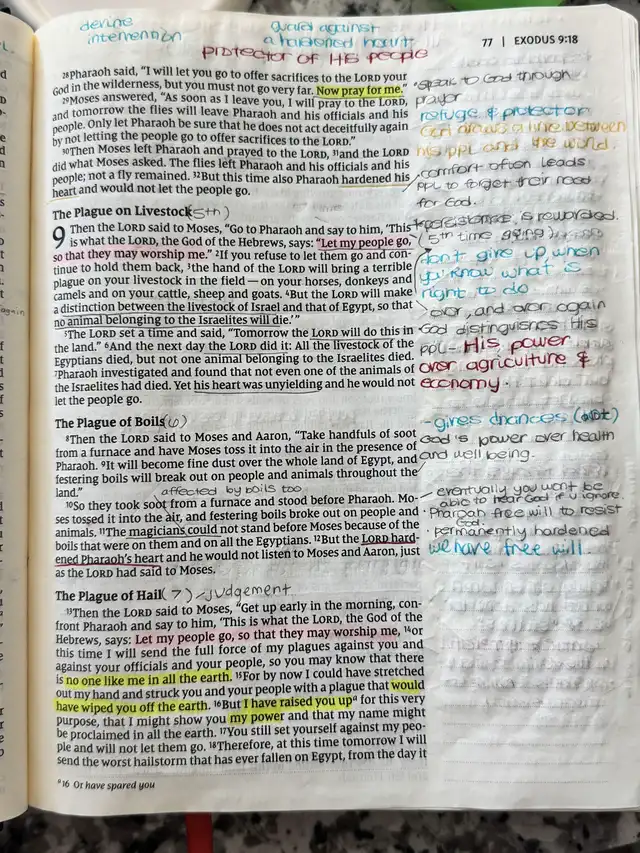 devine
intervention
guard against
a hardened heart
protector of His people
77 | EXODUS 9:18
28Pharaoh said, “I will let you go to offer sacrifices to the LORD your
God in the wilderness, but you must not go very far. Now pray for me.”
29Moses answered, “As soon as I leave you, I will pray to the LORD,
and tomorrow the flies will leave Pharaoh and his officials and his
people. Only let Pharaoh be sure that he does not act deceitfully again
by not letting the people go to offer sacrifices to the LORD.”
30Then Moses left Pharaoh and prayed to the LORD, 31and the LORD
did what Moses asked. The flies left Pharaoh and his officials and his
people; not a fly remained. 32But this time also Pharaoh hardened his
heart and would not let the people go.
The Plague on Livestock (5th)
9 Then the LORD said to Moses, “Go to Pharaoh and say to him, ‘This
is what the LORD, the God of the Hebrews, says: “Let my people go,
so that they may worship me.” 2If you refuse to let them go and con-
tinue to hold them back, 3the hand of the LORD will bring a terrible
plague on your livestock in the field — on your horses, donkeys and
camels and on your cattle, sheep and goats. 4But the LORD will make
a distinction between the livestock of Israel and that of Egypt, so that
no animal belonging to the Israelites will die.’”
5The LORD set a time and said, “Tomorrow the LORD will do this in
the land.” 6And the next day the LORD did it: All the livestock of the
Egyptians died, but not one animal belonging to the Israelites died.
7Pharaoh investigated and found that not even one of the animals of
the Israelites had died. Yet his heart was unyielding and he would not
let the people go.
The Plague of Boils (6)
8Then the LORD said to Moses and Aaron, “Take handfuls of soot
from a furnace and have Moses toss it into the air in the presence of
Pharaoh. 9It will become fine dust over the whole land of Egypt, and
festering boils will break out on people and animals throughout the
land.”
affected by boils too
10So they took soot from a furnace and stood before Pharaoh. Mo-
ses tossed it into the air, and festering boils broke out on people and
animals. 11The magicians could not stand before Moses because of the
boils that were on them and on all the Egyptians. 12But the LORD hard-
ened Pharaoh’s heart and he would not listen to Moses and Aaron, just
as the LORD had said to Moses.
The Plague of Hail (7) / judgement
13Then the LORD said to Moses, “Get up early in the morning, con-
front Pharaoh and say to him, ‘This is what the LORD, the God of the
Hebrews, says: Let my people go, so that they may worship me, 14or
this time I will send the full force of my plagues against you and
against your officials and your people, so you may know that there
is no one like me in all the earth. 15For by now I could have stretched
out my hand and struck you and your people with a plague that would
have wiped you off the earth. 16But I have raised you upa for this very
purpose, that I might show you my power and that my name might
be proclaimed in all the earth. 17You still set yourself against my peo-
ple and will not let them go. 18Therefore, at this time tomorrow I will
send the worst hailstorm that has ever fallen on Egypt, from the day it
a16 Or have spared you
*speak to God through
prayor
refuge & protector
God draws a line between
his ppl and the world.
comfort often leads
ppl to forget their need
for God.
*persistence is rewarded.
(5th time going)
don't give up when
you know what is
right to do
over, and over again
God distinguishes His
ppl- His power
over agriculture &
economy.
-gives chances
God's power over health
and well being.
- eventually you wont be
able to hear God if u ignore.
· Pharoah free will to resist
God.
· permanently hardened
we have free will.
again